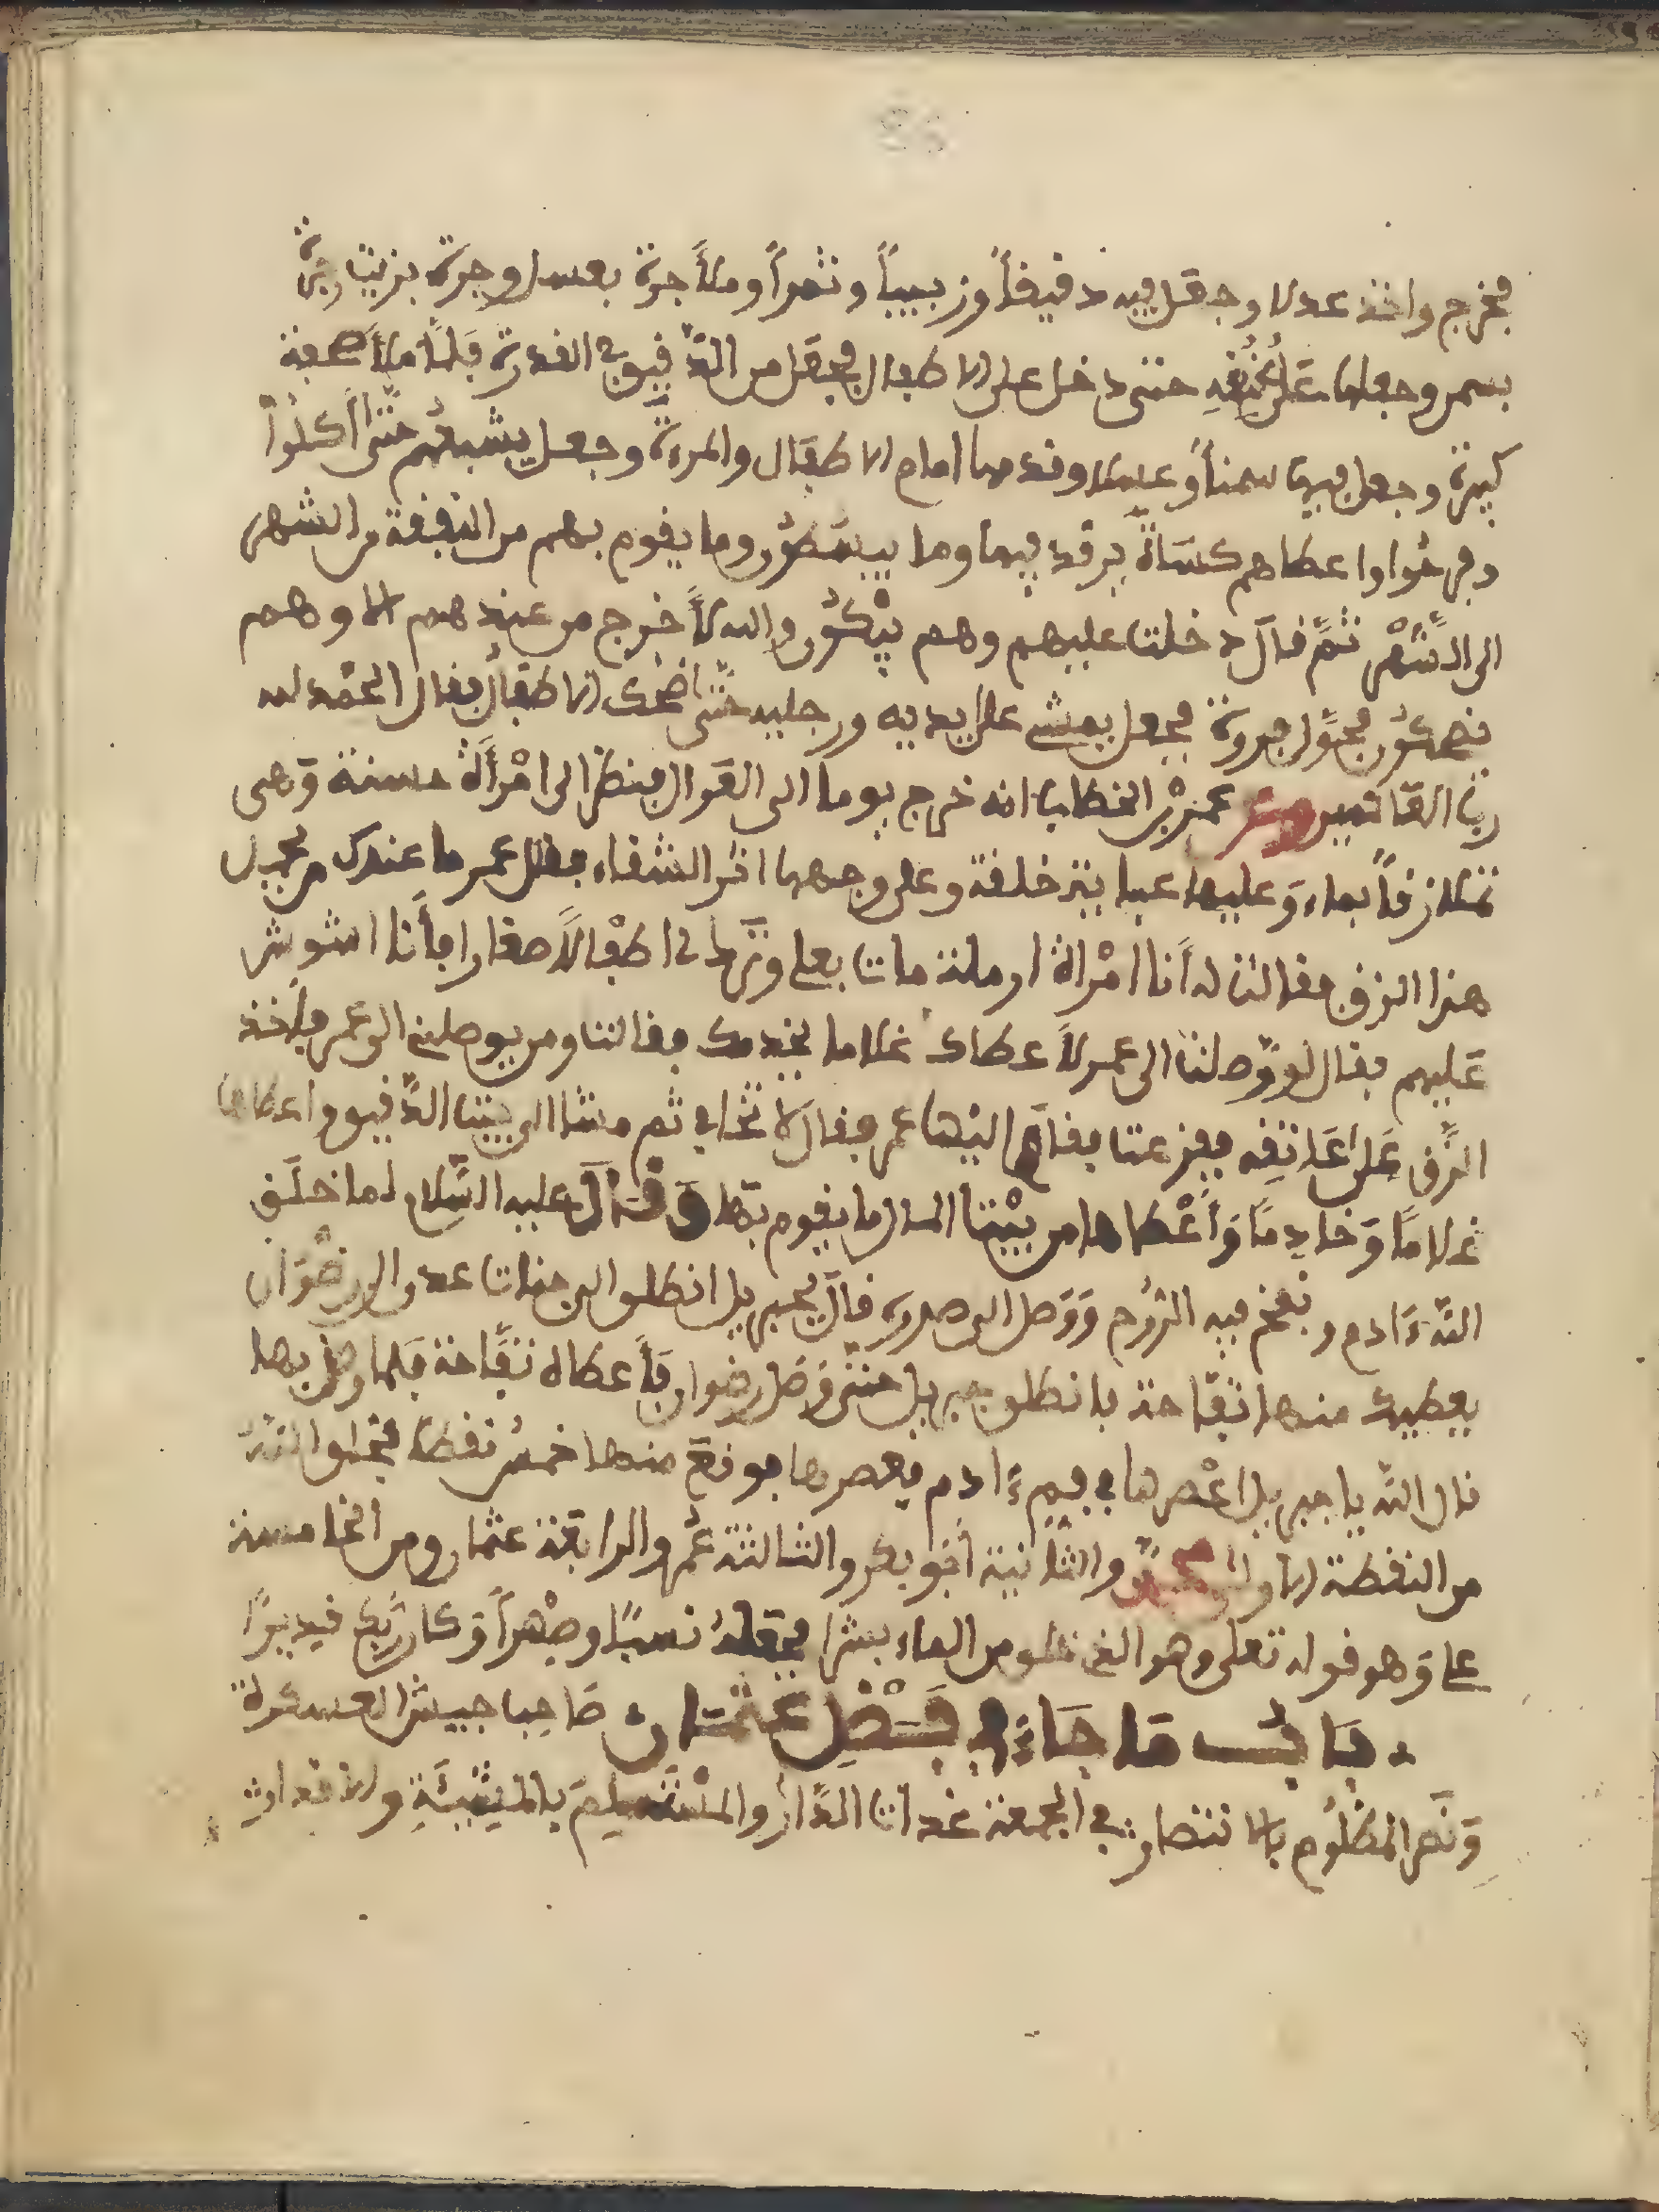 فخرج واخذ عدلا وجعل فيه دقيقاً وزبيباً وتمراً وملأ جرة بعسل وجرة بزيت وجرة
بسمن وجعلها على عُنُقِهِ حتى دخل على الاطفال فجعل من الدّقيق في القدرة فَلمّا ملأ صحفة
كبيرة وجعل فيها سمناً وعسلا وقدمها امام الاطفال والمرءة وجعل يشبعهم حتّى أكلُوا
وفرحُوا واعطاهم كسَاةً يرقد فيها وما يبسَطُون وما يقوم بهم من النفقة من الشهر
الى الشّهْر ثمّ قال دخلت عليهم وهم يبْكُون والله لاَ خرج من عندهم الا وهم
يضحكُون فحَوَّل جروة فجعل يمشي على يديه ورجليه حتّى اضحك الاطفالُ فقال الحمد لله
ربّ العالمين وعن عمر بْن الخطاب انه خرج يوما الى العوال فنظر الى امْرأَة حسنة وَهى
تملا زقاً بماء وَعليها عباية خلقة وعلى وجهها اثر الشقاء فقال عمر ما عندك من يحمل
هذا الزق فقالت له أنا امْراة ارملة مات بعلي وتَرَك لي اطْفالاً صغارا فأنا اشوش
عَليهم فقال لو وّصلت الى عمر لأعطاك غلاما يخدمك فقالت ومن يوصلني الى عمر فأخذ
الزّق عَلى عَاتِقِه ففزعت فقال اليْها عمر فقال لا تخافي ثم مشا الى بيت الدّقيق واعطاها
غلامًا وَخادِمًا وَأَعْطاها من بيْت المال ما يقوم بها وَقَالَ عليه السّلام لما خلَق
اللّه ءَادم ونفخ فيه الرّوُح وَوَصل الى صدره قالَ لجبريل انطلق الى جنات عدن الى رضْوَان
يعطيك منها تفّاحة فانطلق جبريل حتى وَصَل رضوان فَأعطاه تفّاحة فَلما وصل بها
قال اللّه يا جبريل اعْصرها في فمِ ءَادم فعصرها فوقعَ منها خمسُ نقط فخلق اللّهُ
من النقطة الاولى محمدٌ والثّانية أبو بكر والثالثة عُمر والرابعَة عثمان ومن الخامسة
على وَهو قوله تعلى وهو الذي خلق من الماء بشرا فجعَلَهُ نسبًا وصِهْراً وَكان رَبّك قديرًا
. بَابُ مَا جَاءَ في فَضْلِ عُثْمَان، صَاحِب جيش العسرة
وَنَصر المظْلُوم بالانتصار في الجمعة غدات الدّار والمسْتَسلِم بالمشِيئَةِ والاقدار